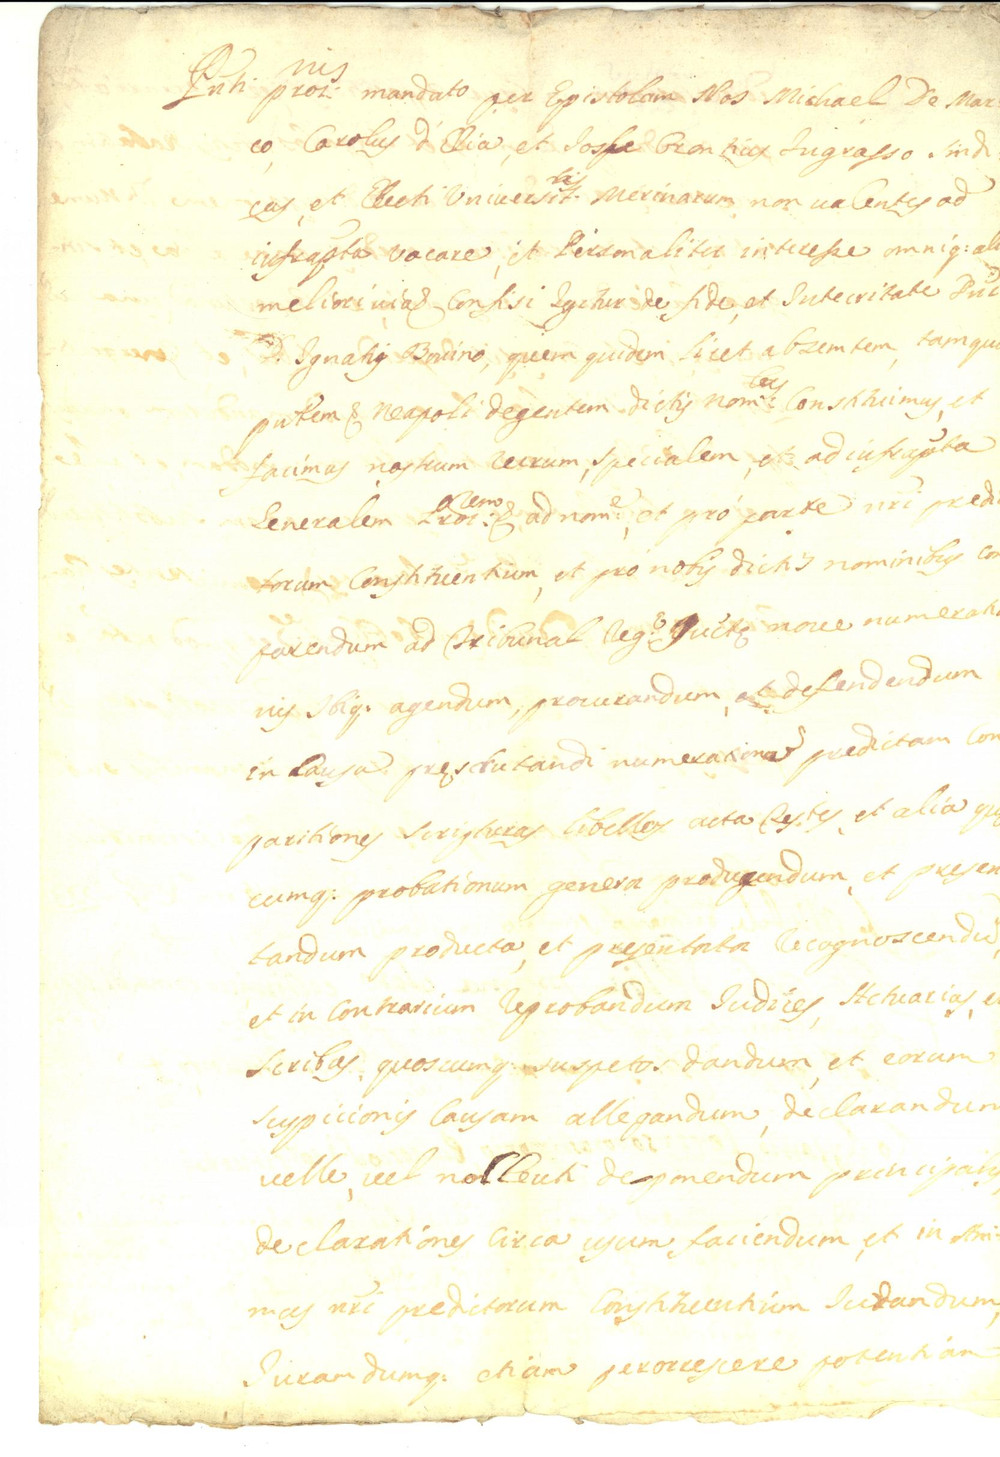 Pnti proi:nis mandato per Epistolam Nos Michael De Mar:
co, Carolus d'Elia, et Joseph Orontius Ingrasso Sindi:
cus, et Electi Universit:tis Merinarum non valentes ad
infrapta vacare, et Personaliter interesse omniq: ali
meliori via &, Confisi Igitur de fide, et Integritate
D. Ignatij Bovino, quem quidem licet absentem, tamqua
pntem & Neapoli degentem dictis nom:bus Constituimus, et
facimus nostrum verum, specialem, et ad infrapta
Generalem Pror:em & ad nom:e, et pro parte nri predi
torum Constituentium, et pro nobis dictis nominibus com
parendum ad Tribunal Reg:e nove numeratio
nis Ibiq: agendum, procurandum, et defendendum
in Causa prescrutandi numerationis predictam Com
paritiones Scripturas libellos acta testes, et alia que
cumq: probationum genera producendum, et presen
tandum producta, et presentata recognoscendu,
et in Contrarium reprobandum Judices, Actuarios, et
Scribas, quoscumq: suspetos dandum, et eorum
suspicionis Causam allegandum, declarandum
velle, vel deponendum principalis
declarationes Circa usum faciendum, et in Ani:
mas nri predictorum Constituentium Jurandum,
Jurandumq: etiam potentiam